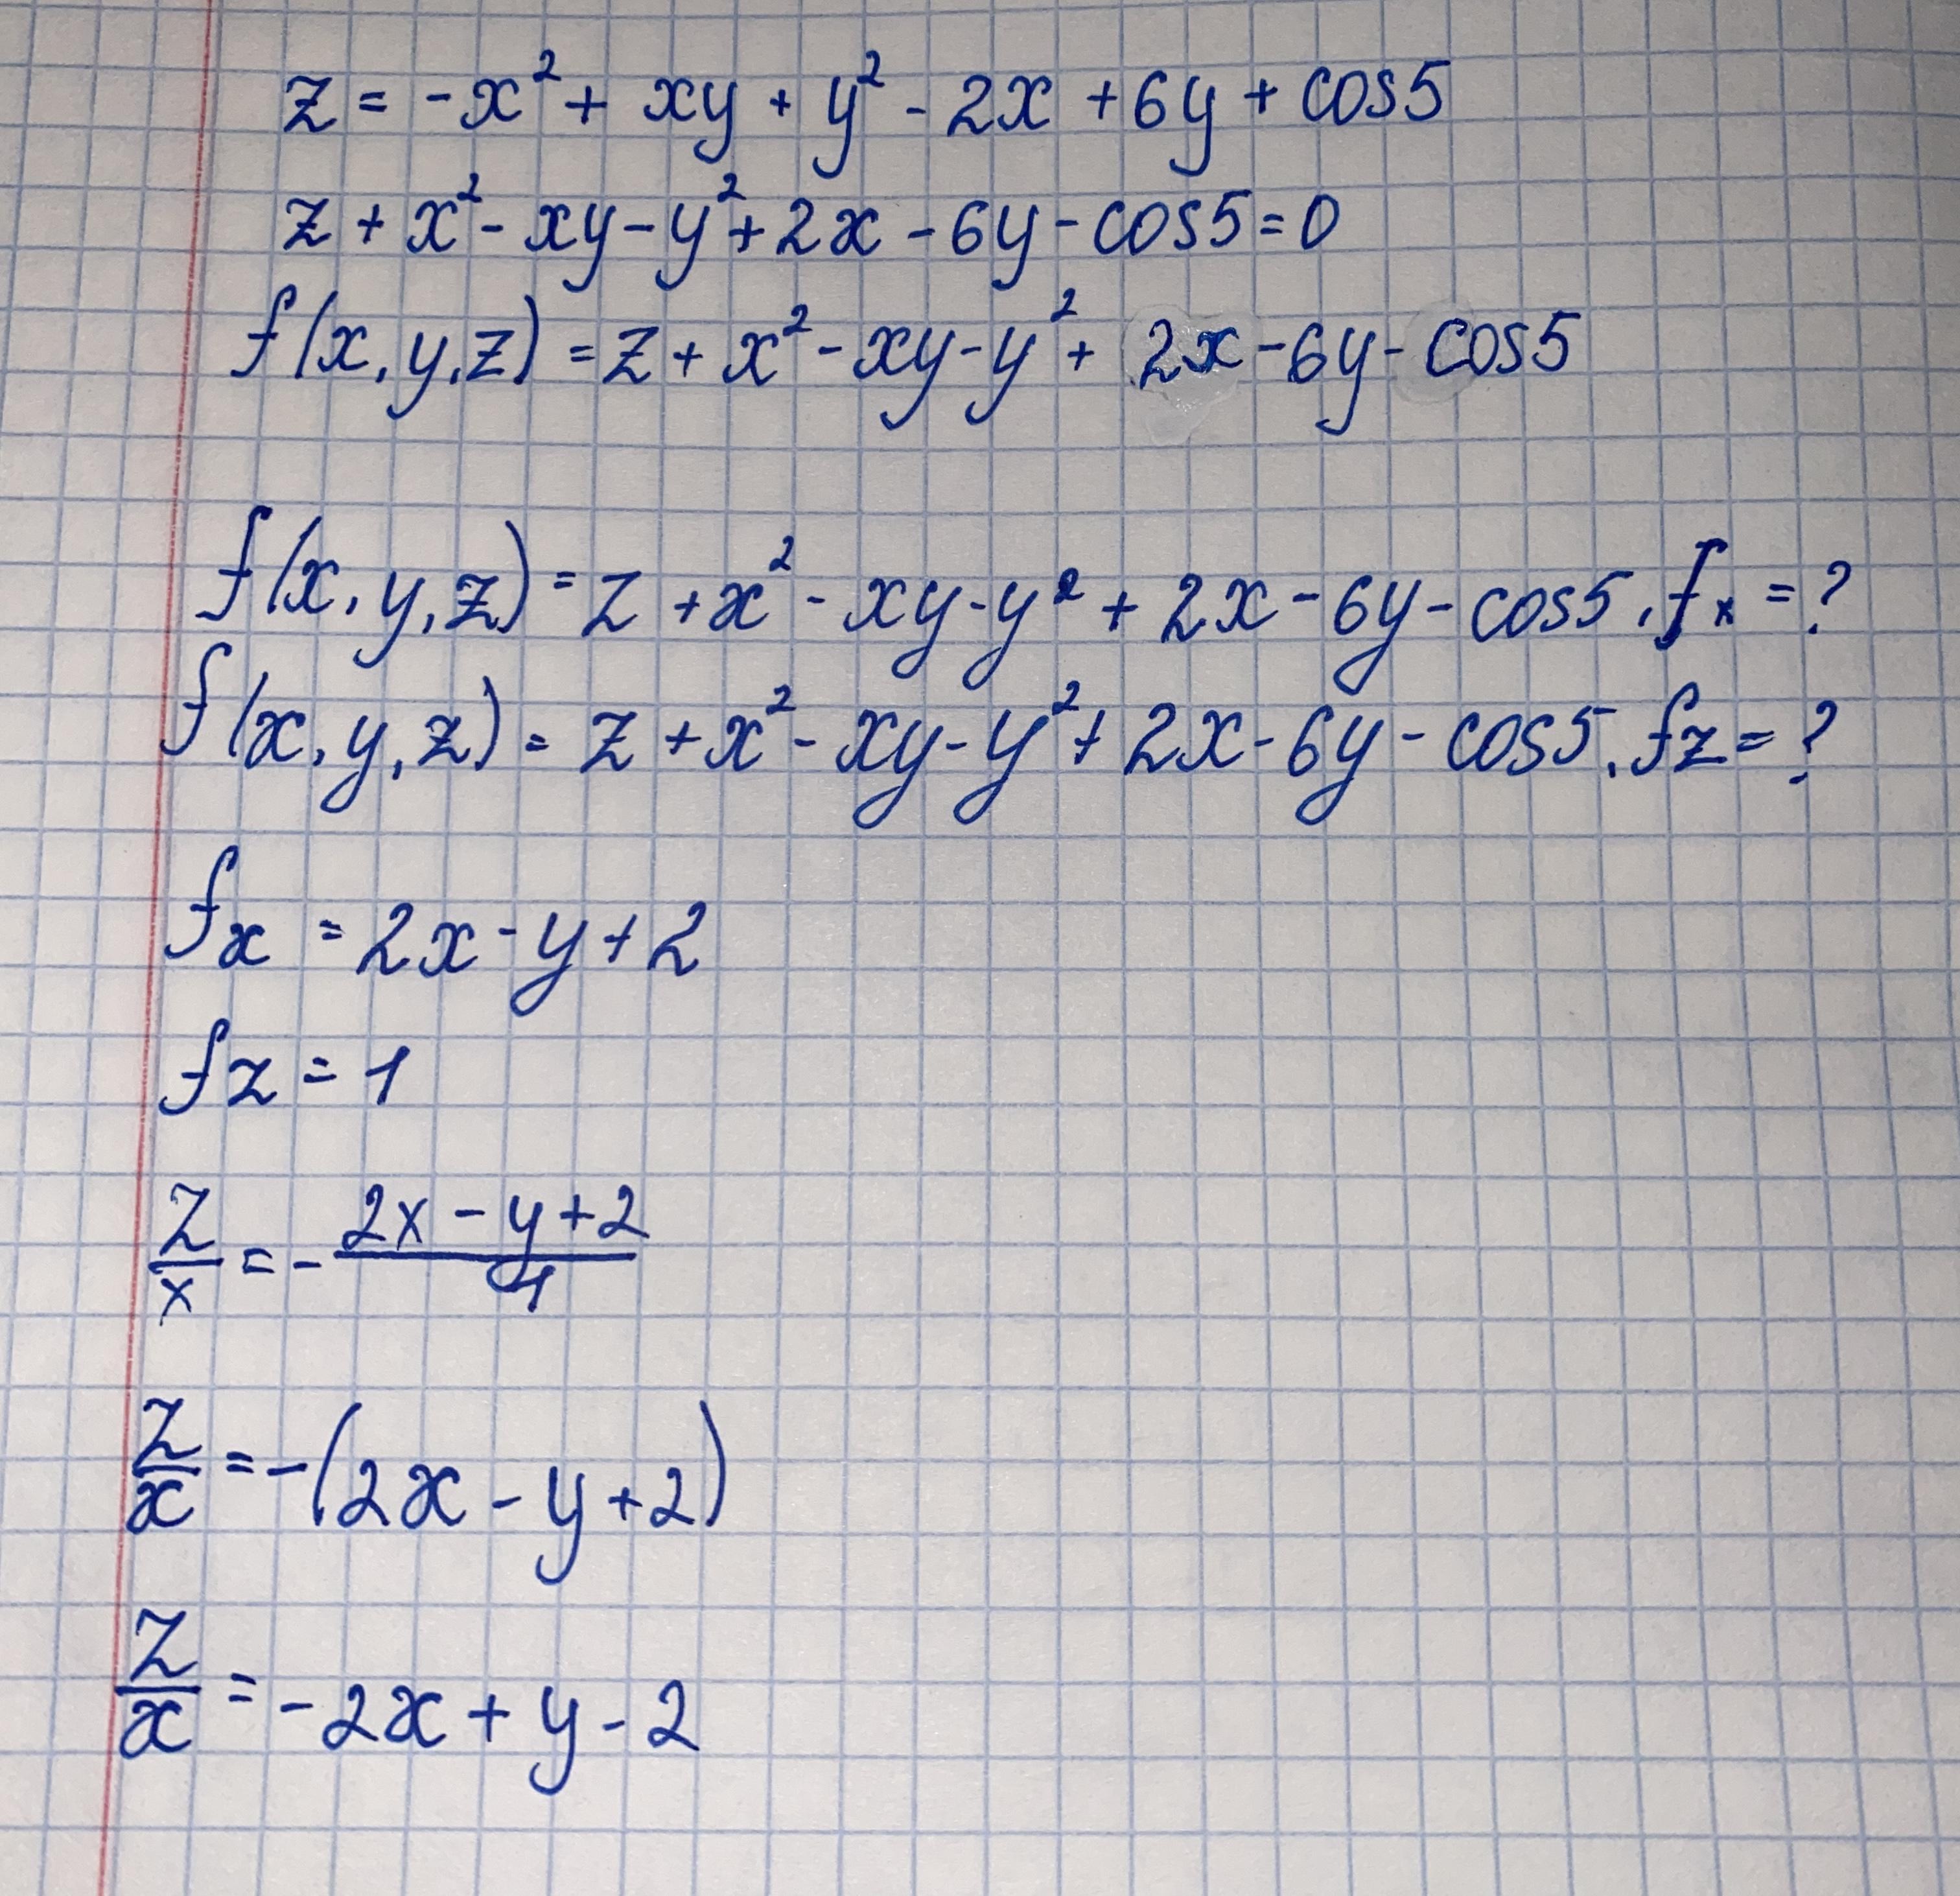 z = -x² + xy + y² - 2x + 6y + cos5
z + x² - xy - y² + 2x - 6y - cos5 = 0
f(x, y, z) = z + x² - xy - y² + 2x - 6y - cos5
f(x, y, z) = z + x² - xy - y² + 2x - 6y - cos5, fx = ?
f(x, y, z) = z + x² - xy - y² + 2x - 6y - cos5, fz = ?
fx = 2x - y + 2
fz = 1
z/x = - (2x - y + 2)/1
z/x = -(2x - y + 2)
z/x = -2x + y - 2